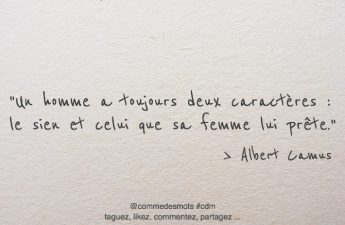 "Un homme a toujours deux caractères :
le sien et celui que sa femme lui prête."
> Albert Camus
@commedesmots #cdm
taguez, likez, commentez, partagez ...